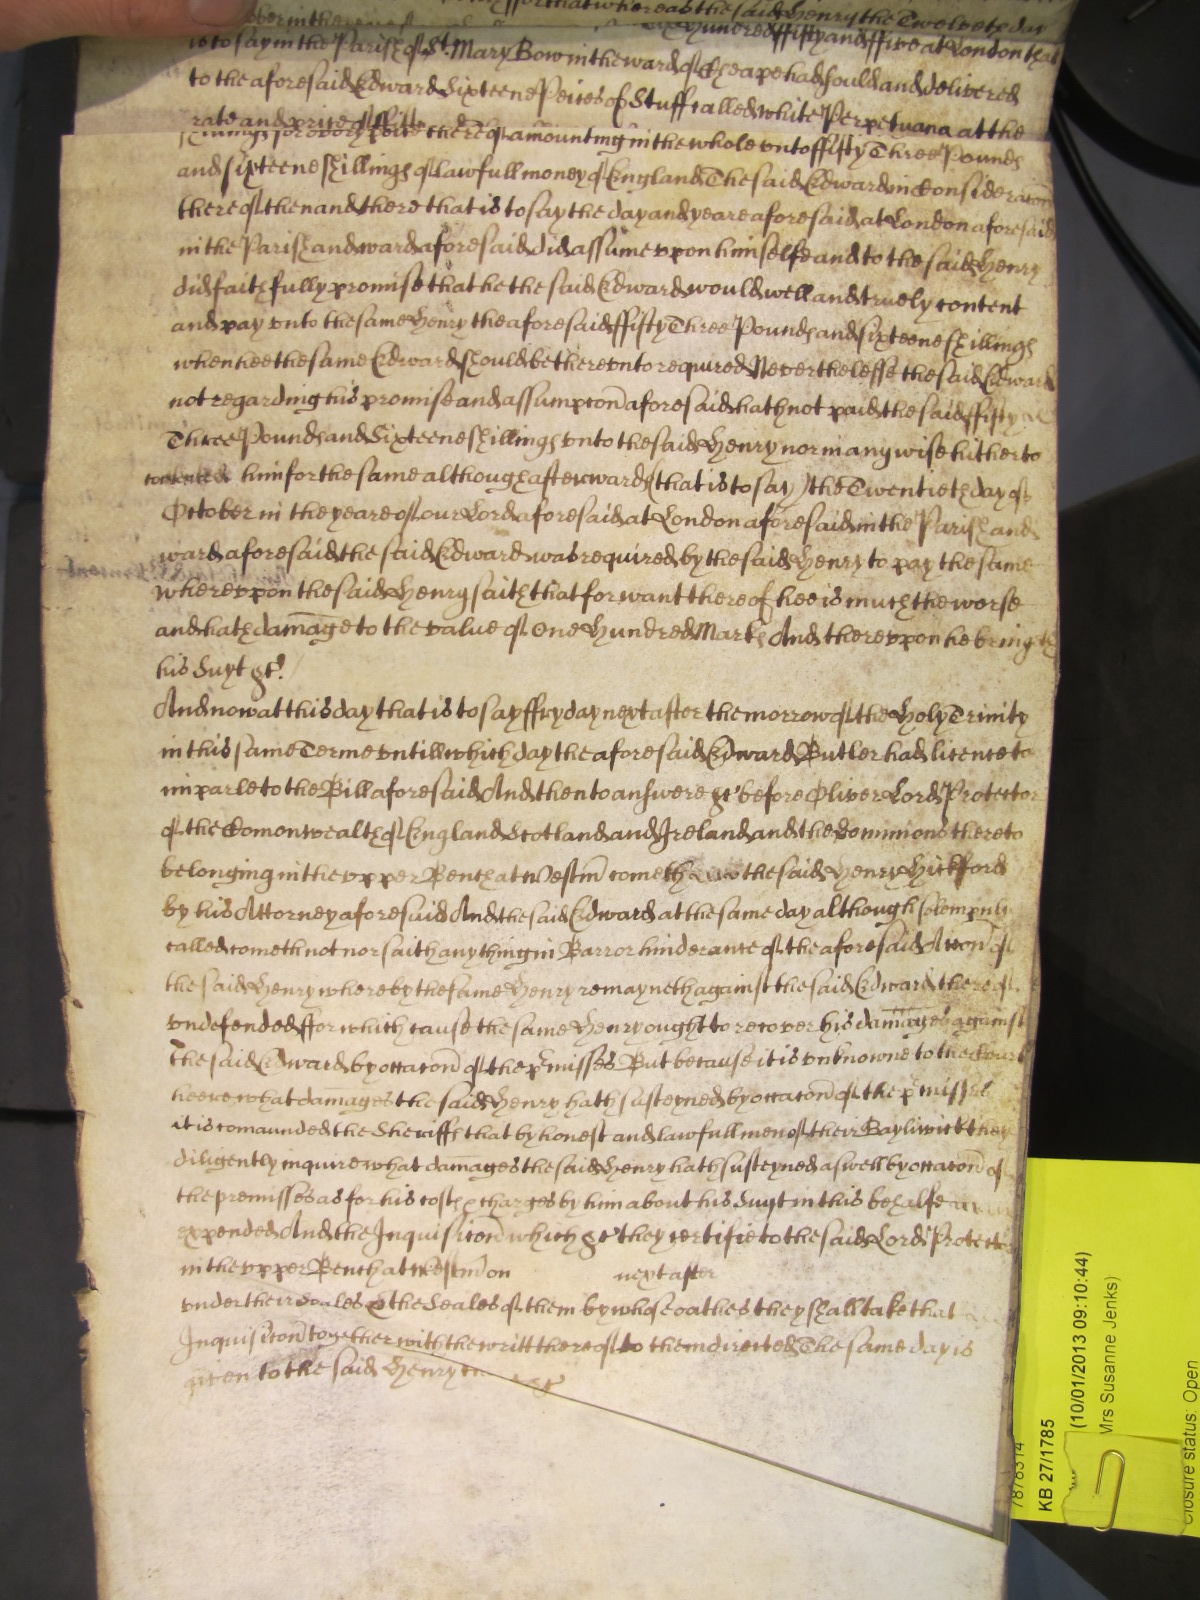 for that whereas the said Henry the Twelveth day
ober in the yeare Hundred ffifty and ffive at London that
is to say in the Parish of St. Mary Bow in the ward of Cheape had sould and delivered
to the aforesaid Edward Sixteene Peices of Stuff called white Perpetuana at the
rate and price of
shillings for every peice thereof amounting in the whole vnto ffifty Three Pounds
and sixteene shillings of lawfull money of England The said Edward in Consideracon
thereof then and there that is to say the day and yeare aforesaid at London aforesaid
in the Parish and ward aforesaid did assume vpon himselfe and to the said Henry
did faithfully promise that he the said Edward would well and truely content
and pay vnto the same Henry the aforesaid ffifty Three Pounds and sixteene shillings
when hee the same Edward should be therevnto required Neverthelesse the said Edward
not regarding his promise and assumpcon aforesaid hath not paid the said ffifty
Three Pounds and Sixteene shillings vnto the said Henry nor in any wise hitherto
contented him for the same although afterwards (that is to say) the Twentieth day of
October in the yeare of our Lord aforesaid at London aforesaid in the Parish and
ward aforesaid the said Edward was required by the said Henry to pay the same
wherevpon the said Henry saith that for want thereof hee is much the worse
and hath damage to the value of One Hundred Marks And therevpon he bringeth
his Suyt &c.
And now at this day that is to say ffryday next after the morrow of the Holy Trinity
in this same Terme vntill which day the aforesaid Edward Butler had licence to
imparle to the Bill aforesaid And then to answere &c before Oliver Lord Protector
of the Comonwealth of England Scotland and Ireland and the Dominions thereto
belonging in the vpper Bench at Westm cometh the said Henry Hickford
by his Attorney aforesaid And the said Edward at the same day although solempnly
called cometh not nor saith any thing in Barr or hinderance of the aforesaid Accon of
the said Henry whereby the same Henry remayneth against the said Edward thereof
vndefended ffor which cause the same Henry ought to recover his damages against
the said Edward by occacon of the p'misses But because it is vnknowne to the Court
heere what damages the said Henry hath susteyned by occacon of the p'misses
it is comaunded the Sheriffs that by honest and lawfull men of their Bayliwick they
diligently inquire what damages the said Henry hath susteyned aswell by occacon of
the premisses as for his costs & charges by him about his Suyt in this behalfe
expended And the Inquisicon which &c they certifie to the said Lord Protector
in the vpper Bench at Westm on next after
vnder their Seales & the Seales of them by whose oathes they shall take that
Inquisicon together with the writt thereof to them directed The same day is
given to the said Henry &c
7878314
KB 27/1785
(10/01/2013 09:10:44)
Mrs Susanne Jenks)
Closure status: Open